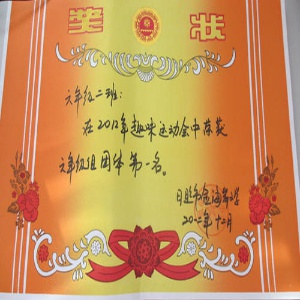 奖 状
六年级二班：
在2012年趣味运动会中荣获
六年级组团体第一名。
日照市金海岸小学
二〇一二年十二月